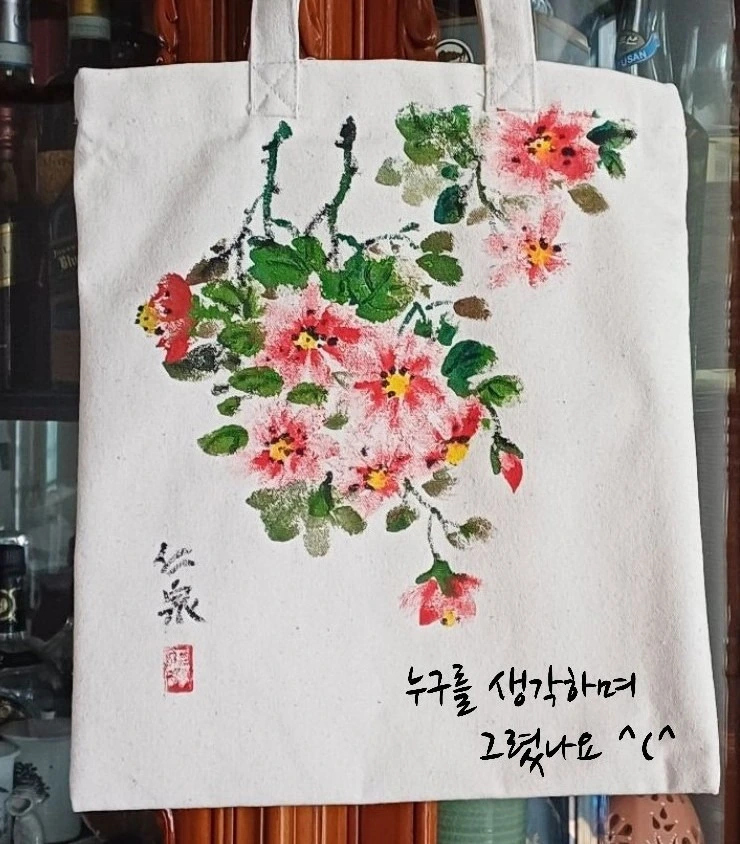 仁
泉
누구를 생각하며
그렸나요 ^(^
USAN